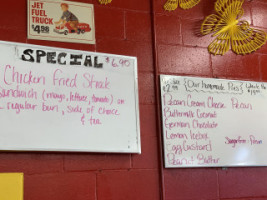 JET
FUEL
TRUCK
$4.50
SPECIAL $6.90
Chicken Fried Steak
Sandwich (mayo, lettuce, tomato) on
regular bun, side of choice
& tea
Our Homemade Pies
Pecan Cream Cheese Pecan
Buttermilk Coconut
German Chocolate
Lemon Icebox
Egg Custard
Sugarfree - Pecan
Peanut Butter